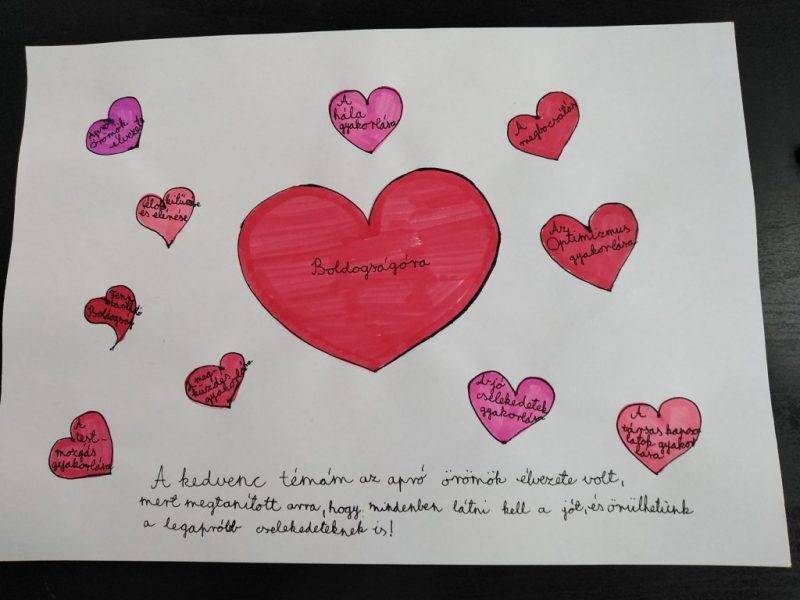 Apró
örömök
élvezete
A
hála
gyakorlása
A
megbocsátás
Célok kitűzése
és elérése
Boldogságóra
Az
Optimizmus
gyakorlása
Fenn
tartható
Boldogság
A meg-
küzdés
gyakorlása
A jó
cselekedetek
gyakorlása
A
test-
mozgás
gyakorlása
A
társas kapcso
latok gyakor
lása
A kedvenc témám az apró örömök élvezete volt,
mert megtanított arra, hogy mindenben látni kell a jót, és örülhetünk
a legapróbb cselekedeteknek is!